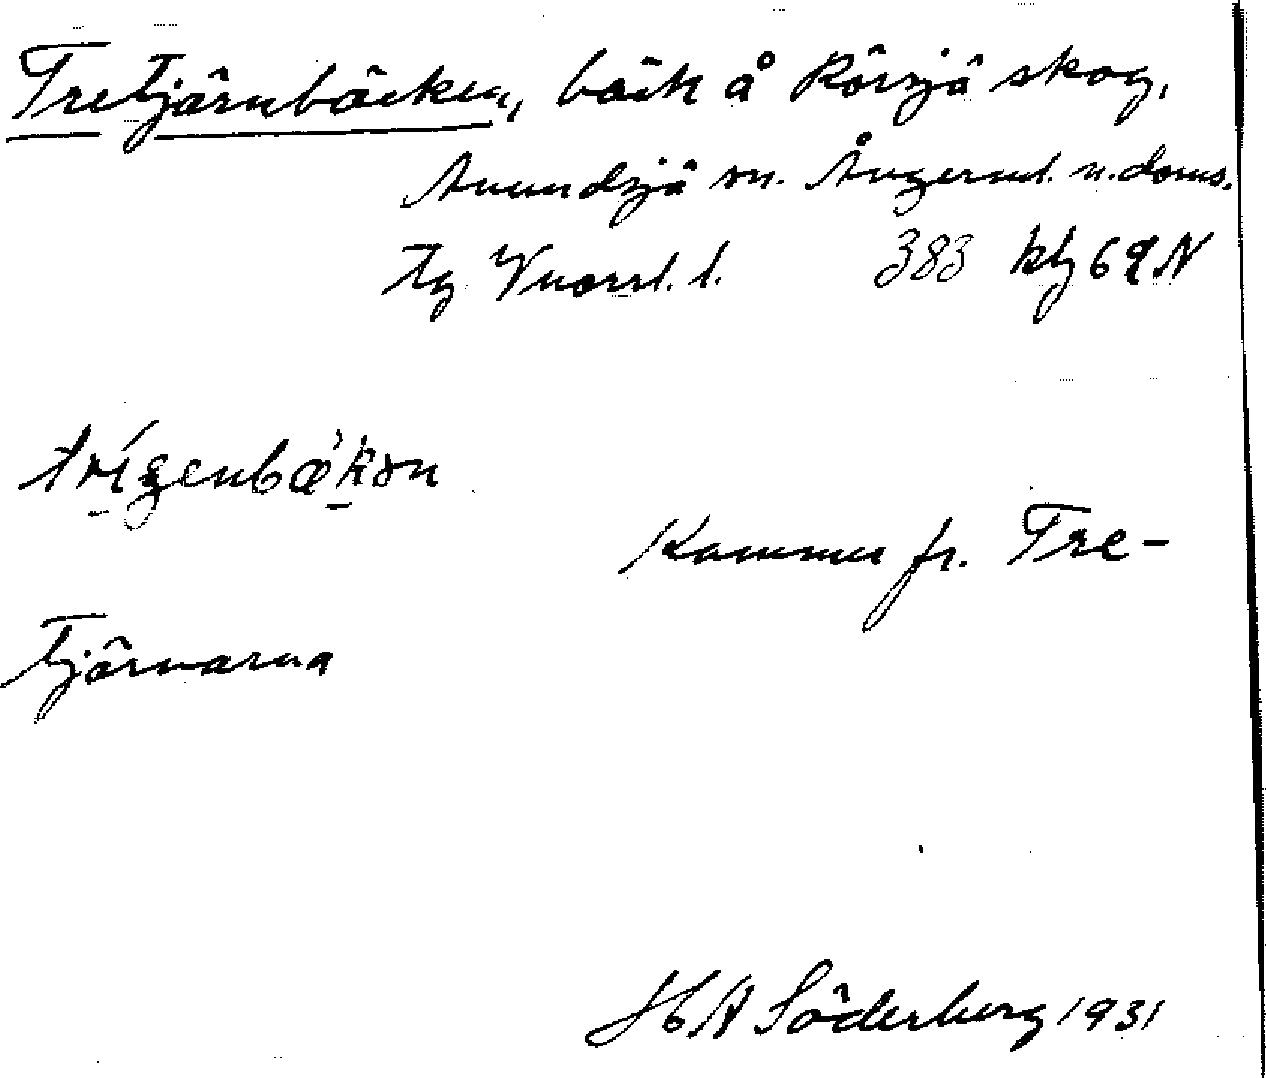 Tretjärnbäcken, bäck å Rörsjö skog,
Anundsjö sn. Ångerml. n. doms.
Tg Vuoml. l. 383 kbj 69 N
Kommer fr. Tre-
tjärnarna
H A Söderberg 1931